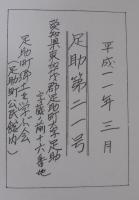 平成一一年三月
足助第二一号
愛知県東加茂郡足助町大字足助
字蔵ノ前十六番地
足助町郷土を学ぶ会
(足助町公民館内)